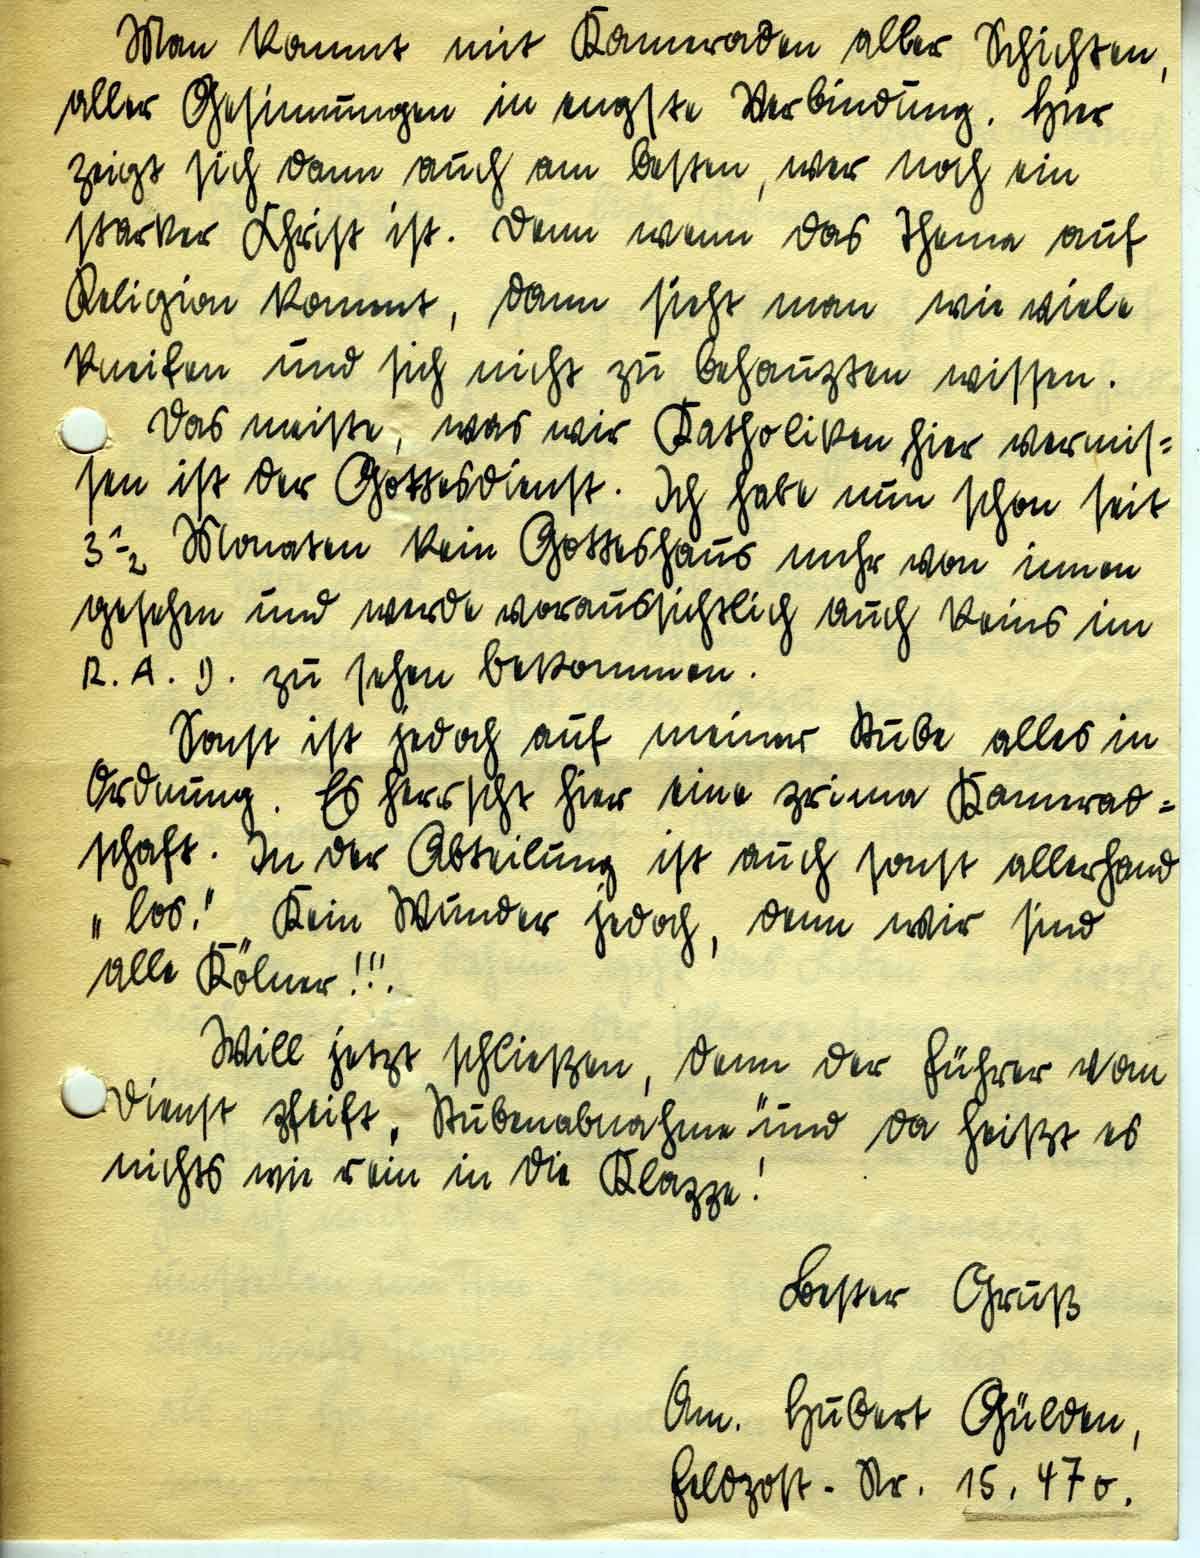 Man kommt mit Kameraden aller Schichten,
aller Gesinnungen in engste Verbindung. Hier
zeigt sich dann auch am besten, wer noch ein
starker Christ ist. Denn wenn das Thema auf
Religion kommt, dann sieht man wie viele
kneifen und sich nicht zu behaupten wissen.
Das meiste, was wir Katholiken hier vermis=
sen ist der Gottesdienst. Ich habe nun schon seit
3 1/2 Monaten kein Gotteshaus mehr von innen
gesehen und werde voraussichtlich auch keins im
R. A. D. zu sehen bekommen.
Sonst ist jedoch auf meiner Stube alles in
Ordnung. Es herrscht hier eine prima Kamerad=
schaft. In der Abteilung ist auch sonst allerhand
„los!" Kein Wunder jedoch, denn wir sind
alle Kölner!!!
Will jetzt schließen, denn der Führer vom
Dienst pfeift „Stubenabnahme" und da heißt es
nichts wie rein in die Klappe!
Bester Gruß
Am. Hubert Gülden,
Feldpost-Nr. 15.470.